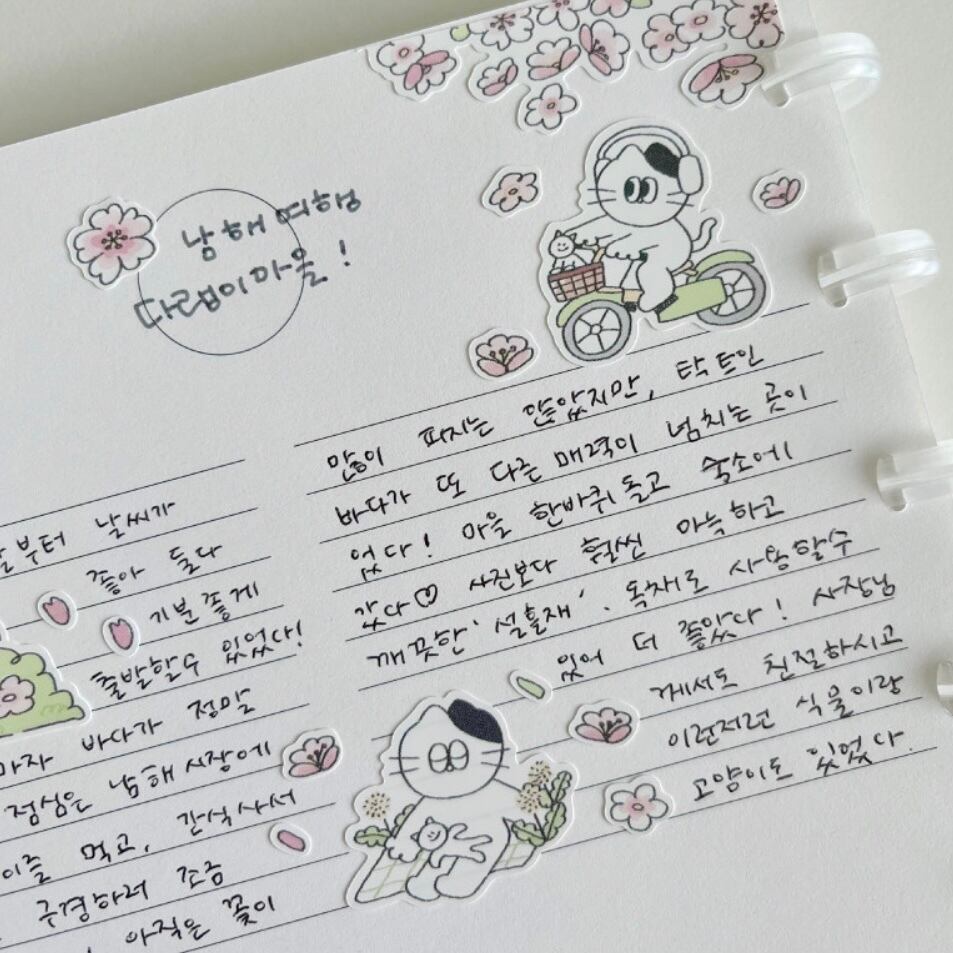 남해 여행
다랭이마을!
부터 날씨가
좋아 둘다
기분 좋게
출발할수 있었다!
마자 바다가 정말
점심은 남해시장에
먹고, 간식사서
구경하러 조금
아직은 꽃이
많이 피지는 않았지만, 탁 트인
바다가 또 다른 매력이 넘치는 곳이
었다! 마을 한바퀴 돌고 숙소에
갔다♡ 사진보다 훨씬 아늑하고
깨끗한 '설흘재'. 독채로 사용할수
있어 더 좋았다! 사장님
께서도 친절하시고
이런저런 식물이랑
고양이도 있었다.